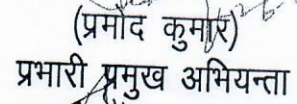 (प्रमोद कुमार)
प्रभारी प्रमुख अभियन्ता